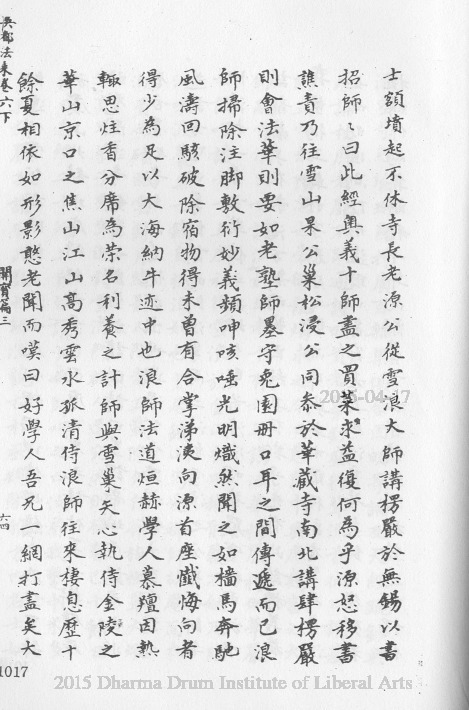 士額墳起不休寺長老源公從雪浪大師講楞嚴於無錫以書
招師曰此經奧義十師盡之買菜求益復何為乎源怒移書
譙責乃往雪山杲公巢松浸公同叅於華藏寺南北講肆楞嚴
則會法華則要如老塾師墨守兎園冊口耳之間傳遞而已浪
師掃除注脚敷衍妙義頻呻咳唾光明熾然聞之如檣馬奔馳
風濤回駭破除宿物得未曾有合掌涕洟向源首座懺悔向者
得少為足以大海納牛迹中也浪師法道烜赫學人慕羶因熱
輙思炷香分席為榮名利養之計師與雪巢矢心執侍金陵之
華山京口之焦山江山高秀雲水孤清侍浪師往來棲息歷十
餘夏相依如形影憨老聞而嘆曰好學人吾兄一網打盡矣大
吳都法乘卷六下
開寶篇三
六四
1017
2015-04-17
2015 Dharma Drum Institute of Liberal Arts